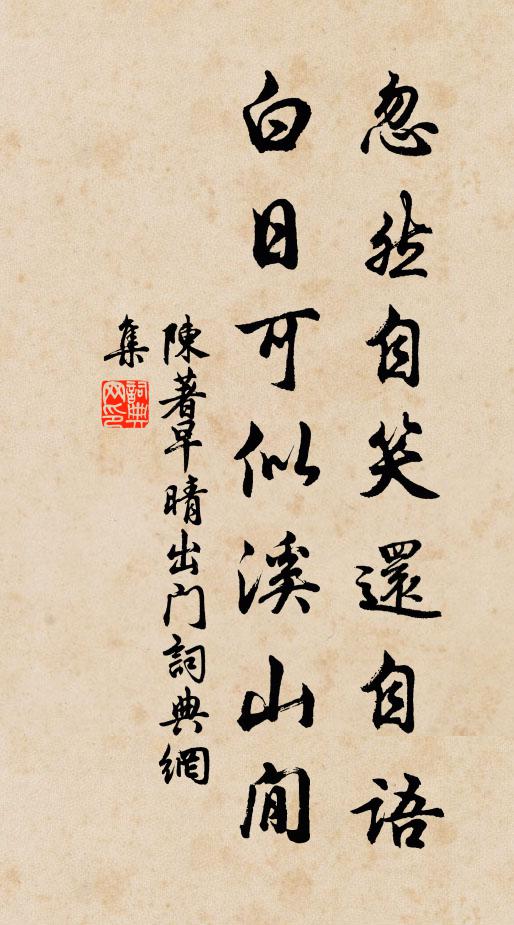 忽然自笑還自語
白日可似溪山閒
陳著早晴出门詞典網
集
詞典
网印